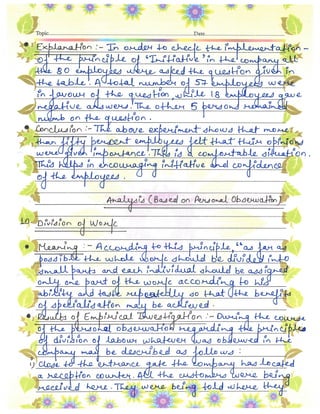 Topic Date
• Explanation :- In order to check the implementation-
of the principle of "Initiative" in the company all
the 80 employees were asked the question given in
the table. A total number of 57 employees were
in favour of the question while 18 employees gave
negative answers. The other 5 persons remained
numb on the question.
• Conclusion :- The above experiment shows that more
than fifty percent employees felt that their opinions
were given importance. This is a comfortable situation.
This helps in encouraging initiative and confidence
of the employees.
Analysis (Based on Personal Observation)
Division of Work
• Meaning :- According to this principle, "as far as
possible the whole work should be divided into
small parts and each individual should be assigned
only one part of the work according to his
ability and taste repeatedly so that the benefits
of specialisation may be achieved.
• Results of Empirical Investigation :- During the course
of the personal observation regarding the principles
of division of labour whatever was observed in the
company may be described as follows :
1) Close to the entrance gate the company has located
a reception counter. All the customers were being
received here. They were being told where they